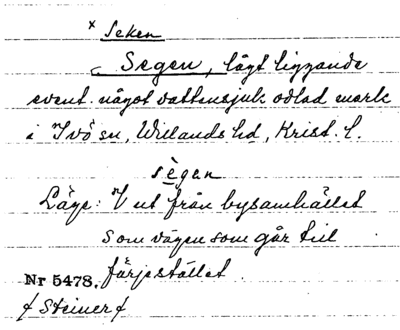 × Seken
Segen, lågt liggande
event. något vattensjuk odlad mark
i Ivö sn, Willands hd, Krist. l.
sègen
Läge: V ut från bysamhället
som vägen som går till
Nr 5478, färjestället.
/ Steiner /